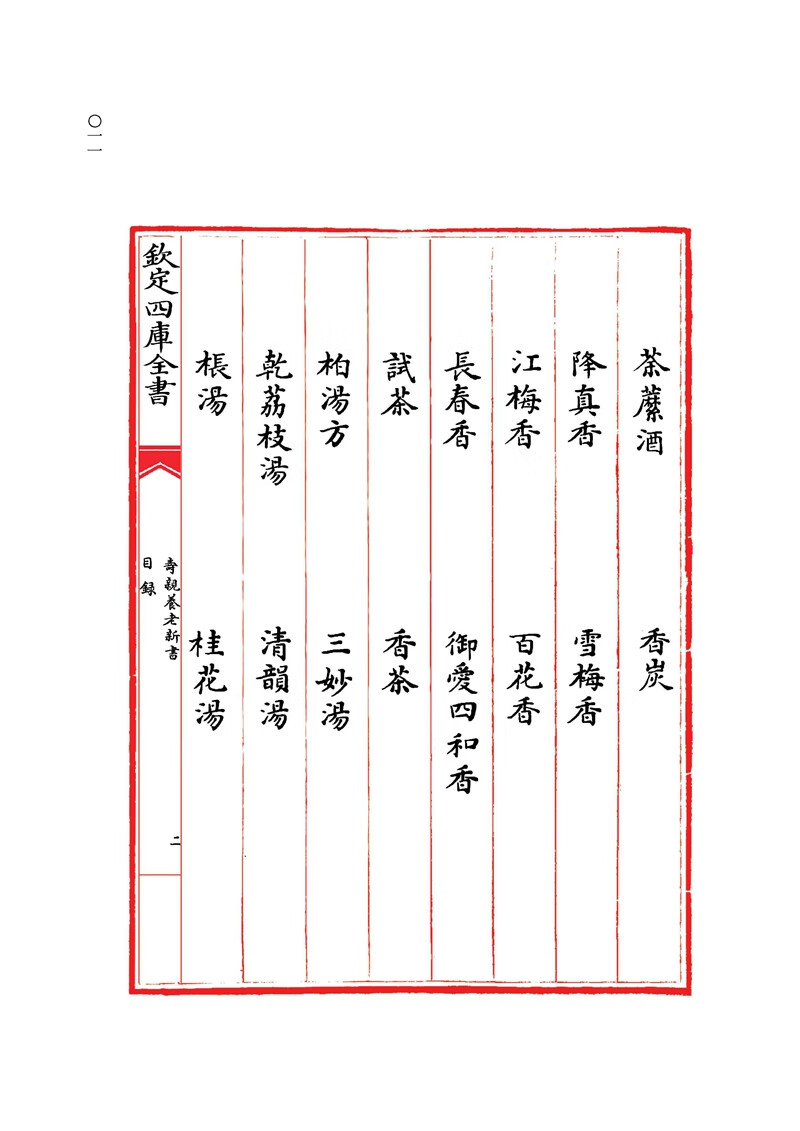 〇一一
荼蘼酒 香炭
降真香 雪梅香
江梅香 百花香
長春香 御愛四和香
試茶 香茶
柏湯方 三妙湯
乾荔枝湯 清韻湯
棖湯 桂花湯
欽定四庫全書
壽親養老新書
目録
二